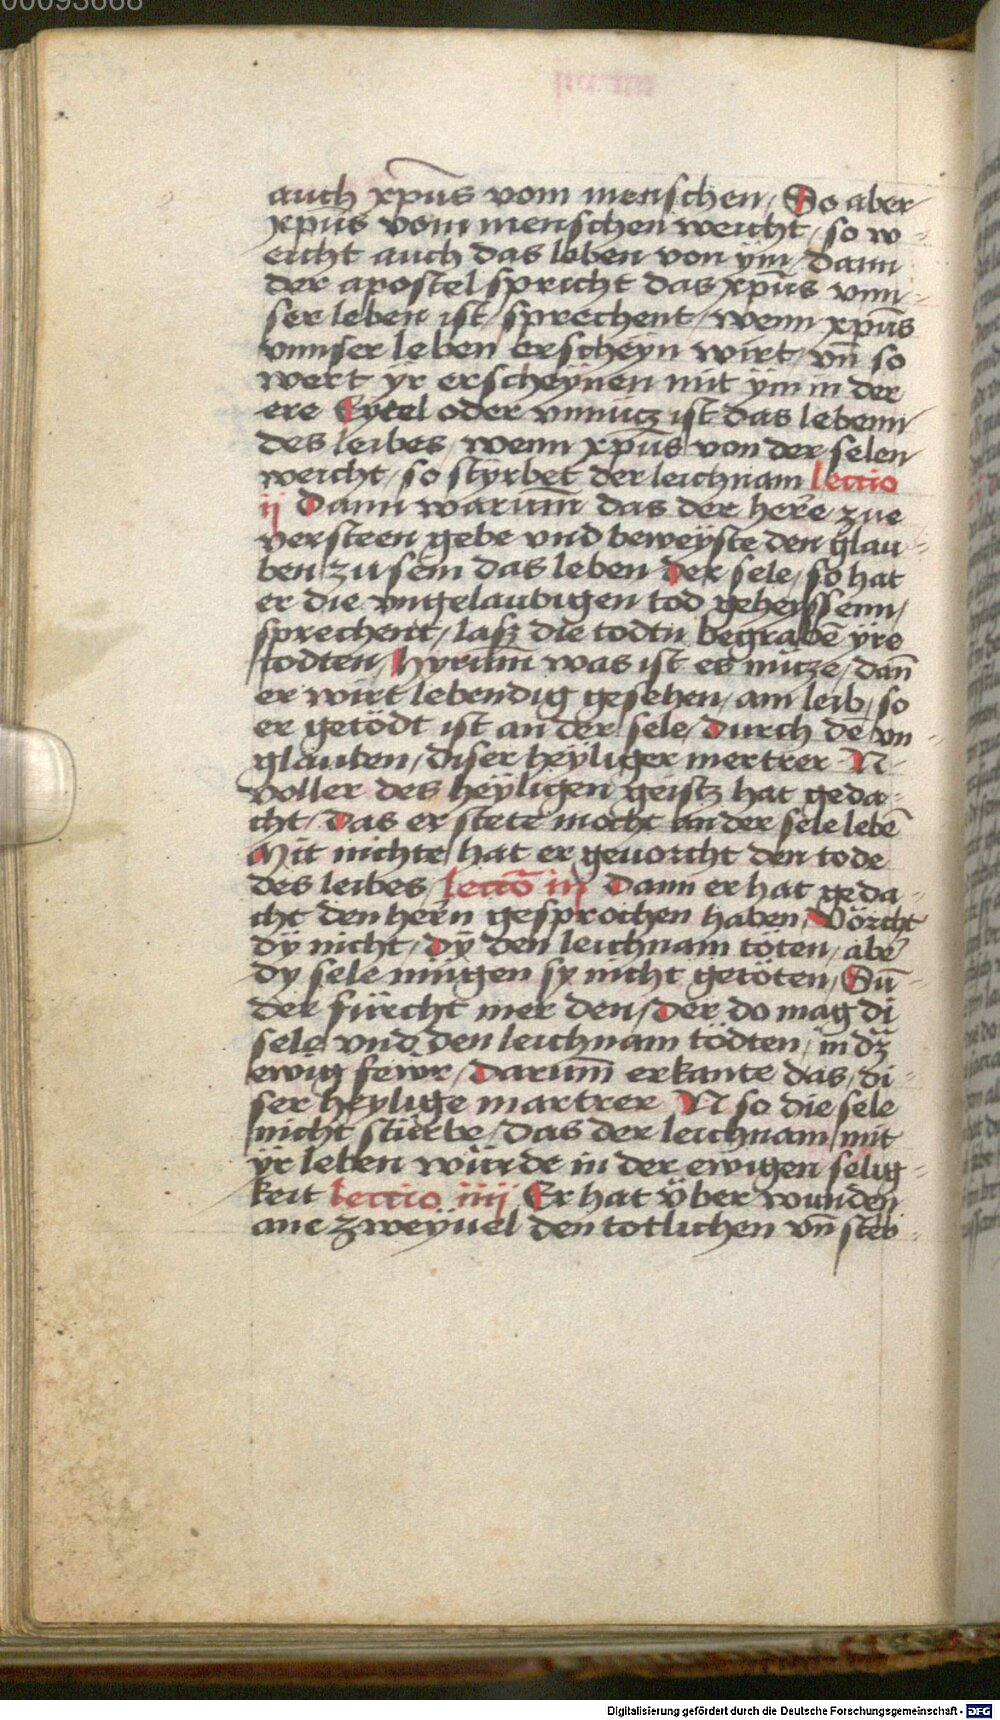 00093668
auch xp̄us vom menschen / So aber
xp̄us vom menschen weicht / so w-
eicht auch das leben von ÿm / dann
der apostel spricht das xp̄us vnn-
ser leben ist / sprechent / wenn xp̄us
vnnser leben erscheyn wirt / vn̄ so
wert ÿr erscheÿnen mit ÿm in der
ere Eytel oder vnnücz ist das lebenn
des leibes / wenn xp̄us von der selen
weicht / so styrbet der leichnam lectio
ij Dann warum̄ das der here zue
versteen gebe vnd beweÿste den glau-
ben zu sein das leben der sele / so hat
er die vngelaubigen tod geheyssenn /
sprechent / lasz die todtn begrabē ÿre
todten / Hyrum̄ was ist es nücze / dan̄
er wirt lebendig gesehen / am leib / so
er getödt ist an der sele / durch dē vn-
glauben / diser heÿliger mertrer N
voller des heÿligen geistz hat geda-
cht / das er stete mocht an der sele lebē
Mit nichte hat er geuorcht den tode
des leibes / lectō iij Dann er hat geda-
cht den hern gesprochen haben / Vörcht
dÿ nicht / dÿ den leichnam töten / aber
dy sele mügen sy nicht getöten / Sun̄-
der fürcht mer den / der do mag di
sele vnd den leichnam tödten / in dz
ewig fewr / Darum̄ erkante das / di-
ser heylige martrer N so die sele
nicht stürbe / das der leichnam mit
ÿr leben würde in der ewigen selig-
keit lectio iiij Er hat über wunden
ane zweÿuel den totlichen vn̄ sterb-
Digitalisierung gefördert durch die Deutsche Forschungsgemeinschaft - DFG